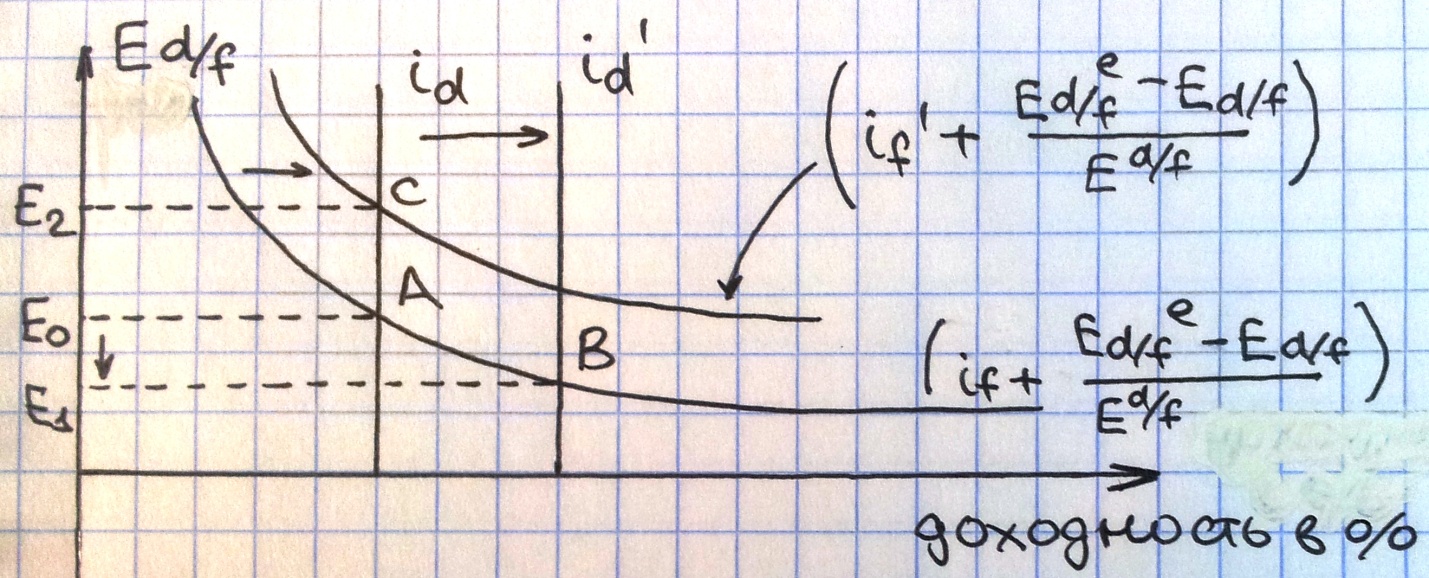 E d/f
id
id'
(if' + (Ed/f^e - Ed/f) / E^d/f)
E₂
C
A
E₀
B
E₁
(if + (Ed/f^e - Ed/f) / E^d/f)
доходность в %